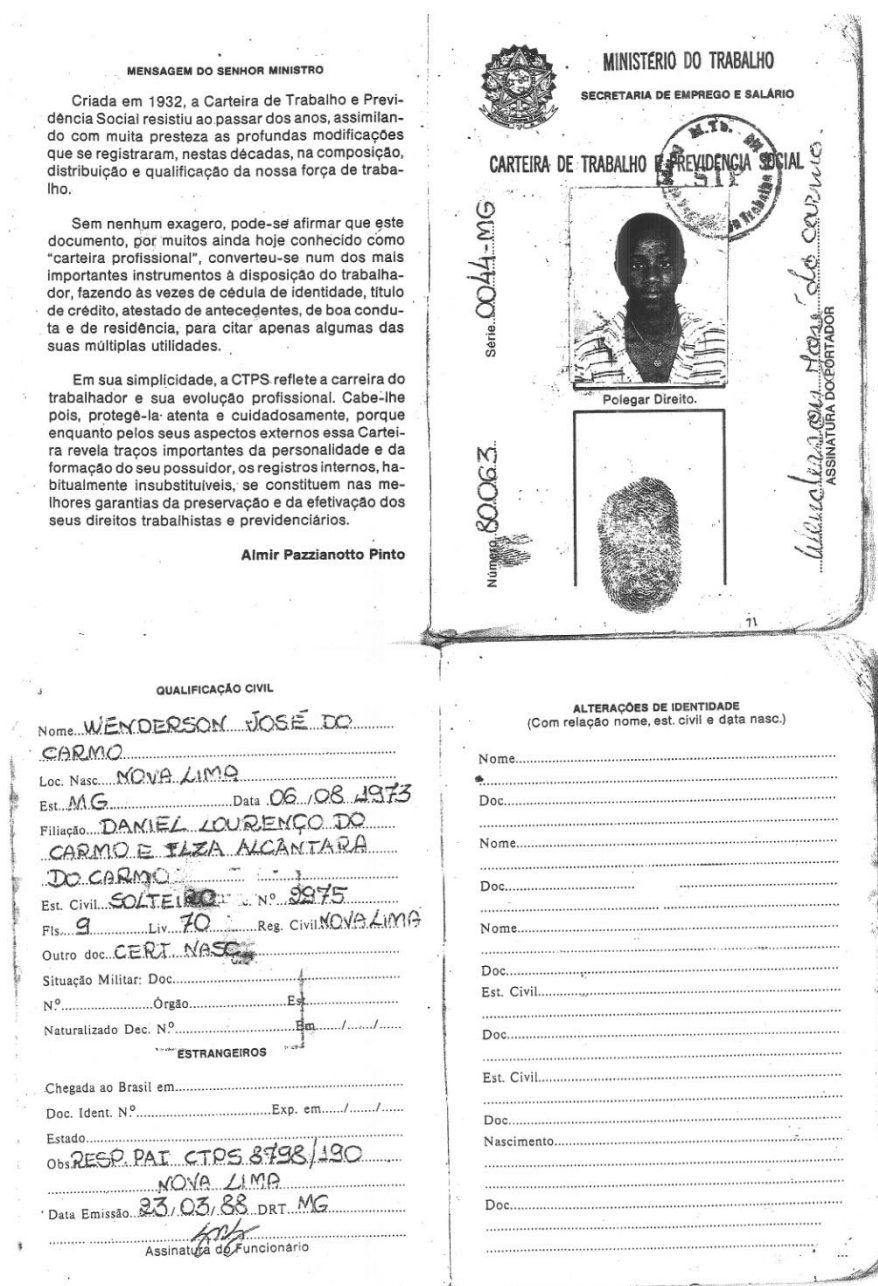 MENSAGEM DO SENHOR MINISTRO
Criada em 1932, a Carteira de Trabalho e Previ-
dência Social resistiu ao passar dos anos, assimilan-
do com muita presteza as profundas modificações
que se registraram, nestas décadas, na composição,
distribuição e qualificação da nossa força de traba-
lho.
Sem nenhum exagero, pode-se afirmar que este
documento, por muitos ainda hoje conhecido como
“carteira profissional”, converteu-se num dos mais
importantes instrumentos à disposição do trabalha-
dor, fazendo às vezes de cédula de identidade, título
de crédito, atestado de antecedentes, de boa condu-
ta e de residência, para citar apenas algumas das
suas múltiplas utilidades.
Em sua simplicidade, a CTPS reflete a carreira do
trabalhador e sua evolução profissional. Cabe-lhe
pois, protegê-la atenta e cuidadosamente, porque
enquanto pelos seus aspectos externos essa Cartei-
ra revela traços importantes da personalidade e da
formação do seu possuidor, os registros internos, ha-
bitualmente insubstituíveis, se constituem nas me-
lhores garantias da preservação e da efetivação dos
seus direitos trabalhistas e previdenciários.
Almir Pazzianotto Pinto
MINISTÉRIO DO TRABALHO
SECRETARIA DE EMPREGO E SALÁRIO
CARTEIRA DE TRABALHO E PREVIDÊNCIA SOCIAL
M.Tb.
Trabalho
Série 0044-MG
Número 80063
Polegar Direito.
Wenderson José do Carmo.
ASSINATURA DO PORTADOR
71
QUALIFICAÇÃO CIVIL
Nome WENDERSON JOSÉ DO
CARMO
Loc. Nasc. NOVA LIMA
Est. MG Data 06/08 1973
Filiação DANIEL LOURENÇO DO
CARMO E ILZA ALCÂNTARA
DO CARMO
Est. Civil SOLTEIRO Nº 9975
Fls. 9 Liv 70 Reg. Civil NOVA LIMA
Outro doc. CERT. NASC
Situação Militar: Doc.
N.º Órgão Est
Naturalizado Dec. N.º Em / /
ESTRANGEIROS
Chegada ao Brasil em
Doc. Ident. N.º Exp. em / /
Estado
Obs RESP. PAI CTPS 8798/190
NOVA LIMA
Data Emissão 23/03/88 DRT MG
Assinatura do Funcionário
ALTERAÇÕES DE IDENTIDADE
(Com relação nome, est. civil e data nasc.)
Nome
Doc.
Nome
Doc.
Nome
Doc.
Est. Civil
Doc.
Est. Civil
Doc.
Nascimento
Doc.